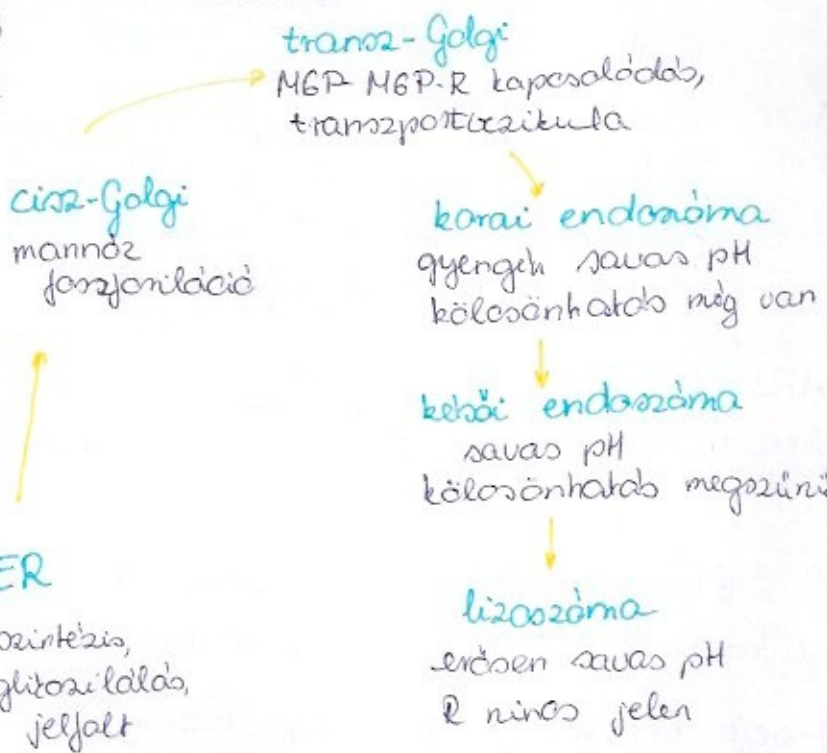 transz-Golgi
M6P M6P-R kapcsolódás,
transzportvezikula
cisz-Golgi
mannóz
foszforiláció
korai endoszóma
gyengén savas pH
kölcsönhatás még van
késői endoszóma
savas pH
kölcsönhatás megszűni
ER
szintézis,
glikozilálás,
jelfolt
lizoszóma
erősen savas pH
R nincs jelen